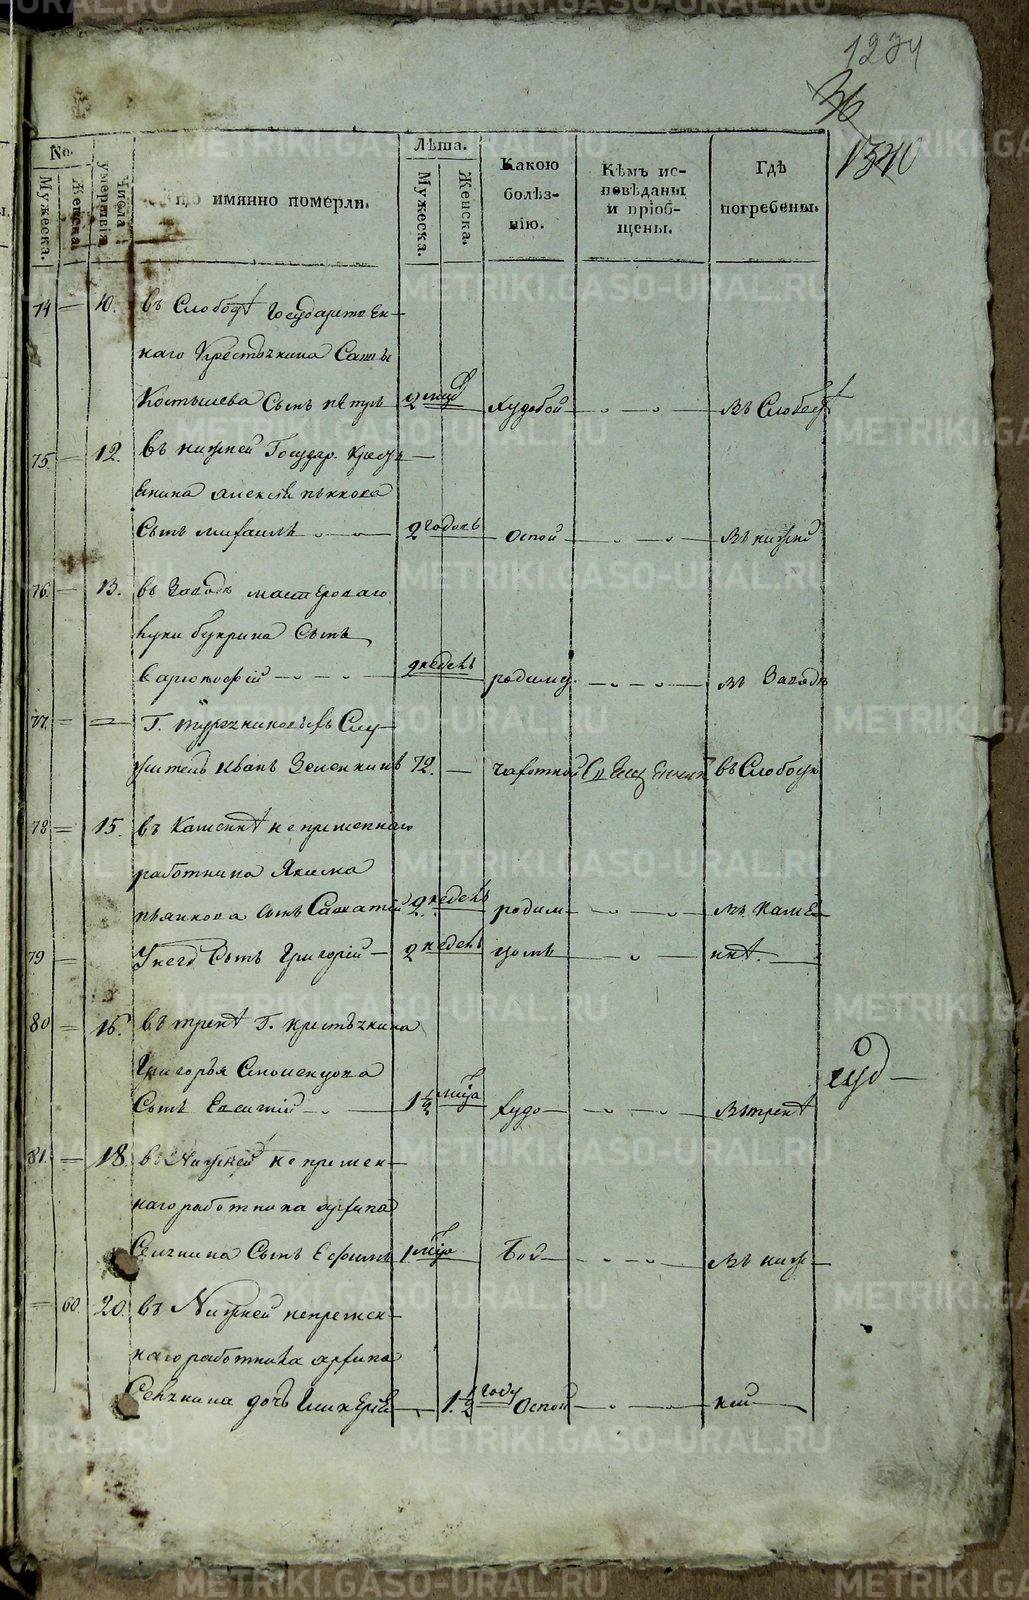 1234
36
1340
No. Лѣта.
Мужеска. Женска. Числа умертвія. Кто имянно померли. Мужеска. Женска. Какою болѣзнію. Кѣмъ исповѣданы и пріобщены. Гдѣ погребены.
74 — 10. въ Слободѣ Государствен-
наго Крестьянина Саввы
Костылева Сынъ Петръ 2 мцд Худобой — " — " — въ Слободѣ
75 — 12. въ нижней Государ. Крестья-
янина алексѣя
Сынъ михаилъ " — " — 2 годовъ Оспой — " — " — въ нижней
76. — 13. въ Заводѣ мастероваго
луки букрина Сынъ
— " — " — 2 недель родимц. — " — " — въ Заводѣ
77. — = Г. Турчаниновыхъ Слу-
житель иванъ Зеленкинъ 72. — чахоткой въ Слободѣ
78 = 15. въ Каменкѣ непременнаго
работника Якима
пьянкова сынъ Савватей 2 недель родим — " — " — въ Камен-
79 — Унего Сынъ Григорій — 2 недель — " — нкѣ. —
80 = 16. въ трекѣ Г. крестьянина
Григорья
Сынъ Евсигній — " — 1 1/2 мца худо — " — " — въ трекѣ
худ —
81. = 18. въ Нижней непремен-
наго работника архипа
Сенчина Сынъ Ефимъ 1 мца Бой — " — " — въ ниж-
— 60 20. въ Нижней непремен-
наго работника архипа
Сенчина дочь Гликерія — 1. 1/2 году Оспой — " — " — ней —
METRIKI.GASO-URAL.RU